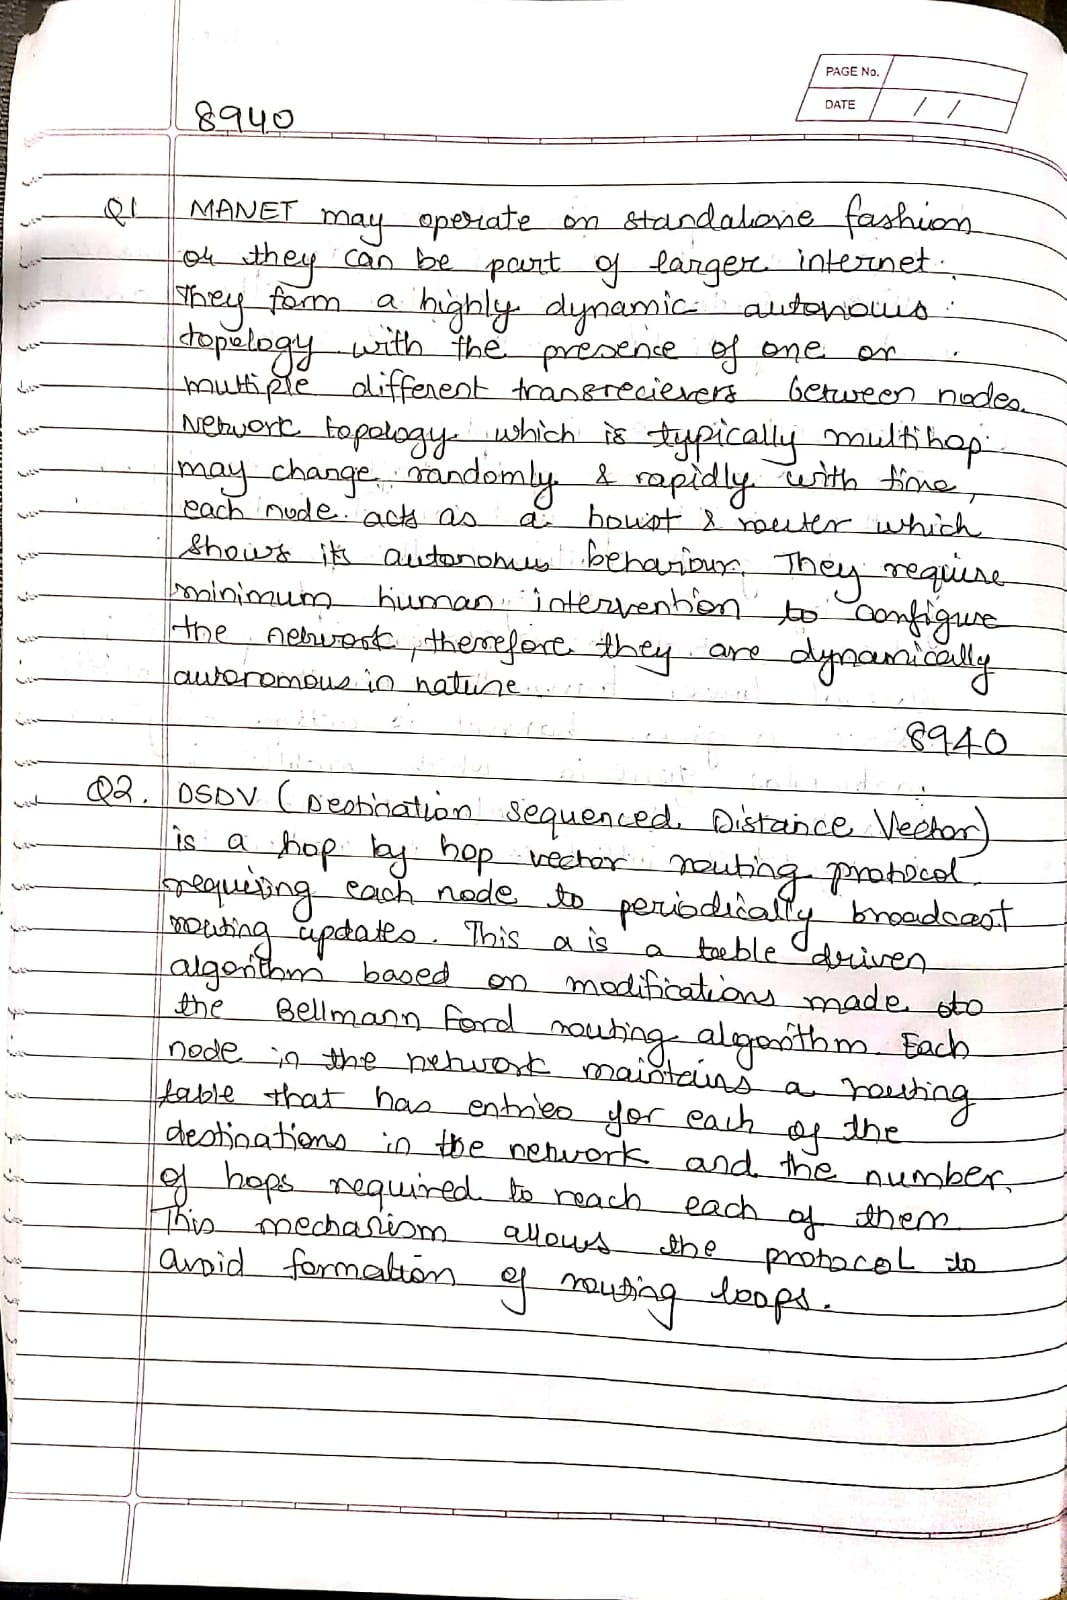 PAGE No.
DATE / /
8940
Q1 MANET may operate on standalone fashion
or they can be part of larger internet.
They form a highly dynamic autonous
topology with the presence of one or
multiple different transrecievers between nodes.
Network topology which is typically multihop
may change randomly & rapidly with time,
each node acts as a houst & router which
shows its autonomus behaviour. They require
minimum human intervention to configure
the network, therefore they are dynamically
autonomous in nature
8940
Q2. DSDV (Destination Sequenced Distance Vector)
is a hop by hop vector routing protocol
requiring each node to periodically broadcast
routing updates. This a is a table driven
algorithm based on modifications made to
the Bellmann Ford routing algorithm. Each
node in the network maintains a routing
table that has entries for each of the
destinations in the network and the number
of hops required to reach each of them
This mechanism allows the protocol to
avoid formation of routing loops.